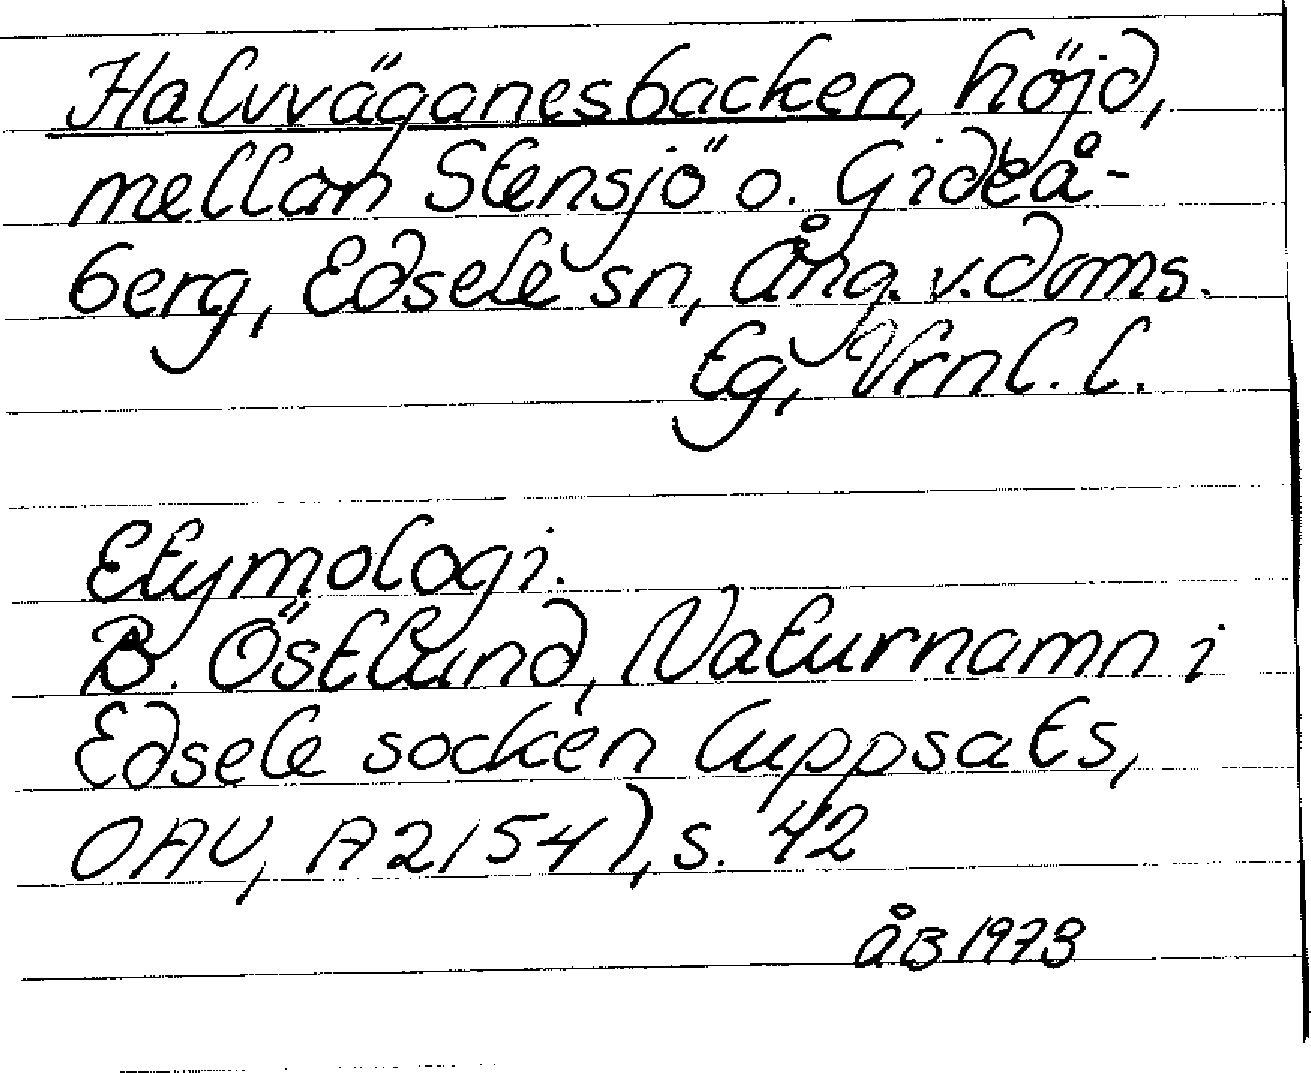 Halvväganesbacken, höjd,
mellan Stensjö o. Gideå-
berg, Edsele sn, Ång. v. doms.
Eg, Vrnl. l.
Etymologi.
B. Östlund, Naturnamn i
Edsele socken (uppsats,
OAU, A 2154), s. 42
ÅB 1973